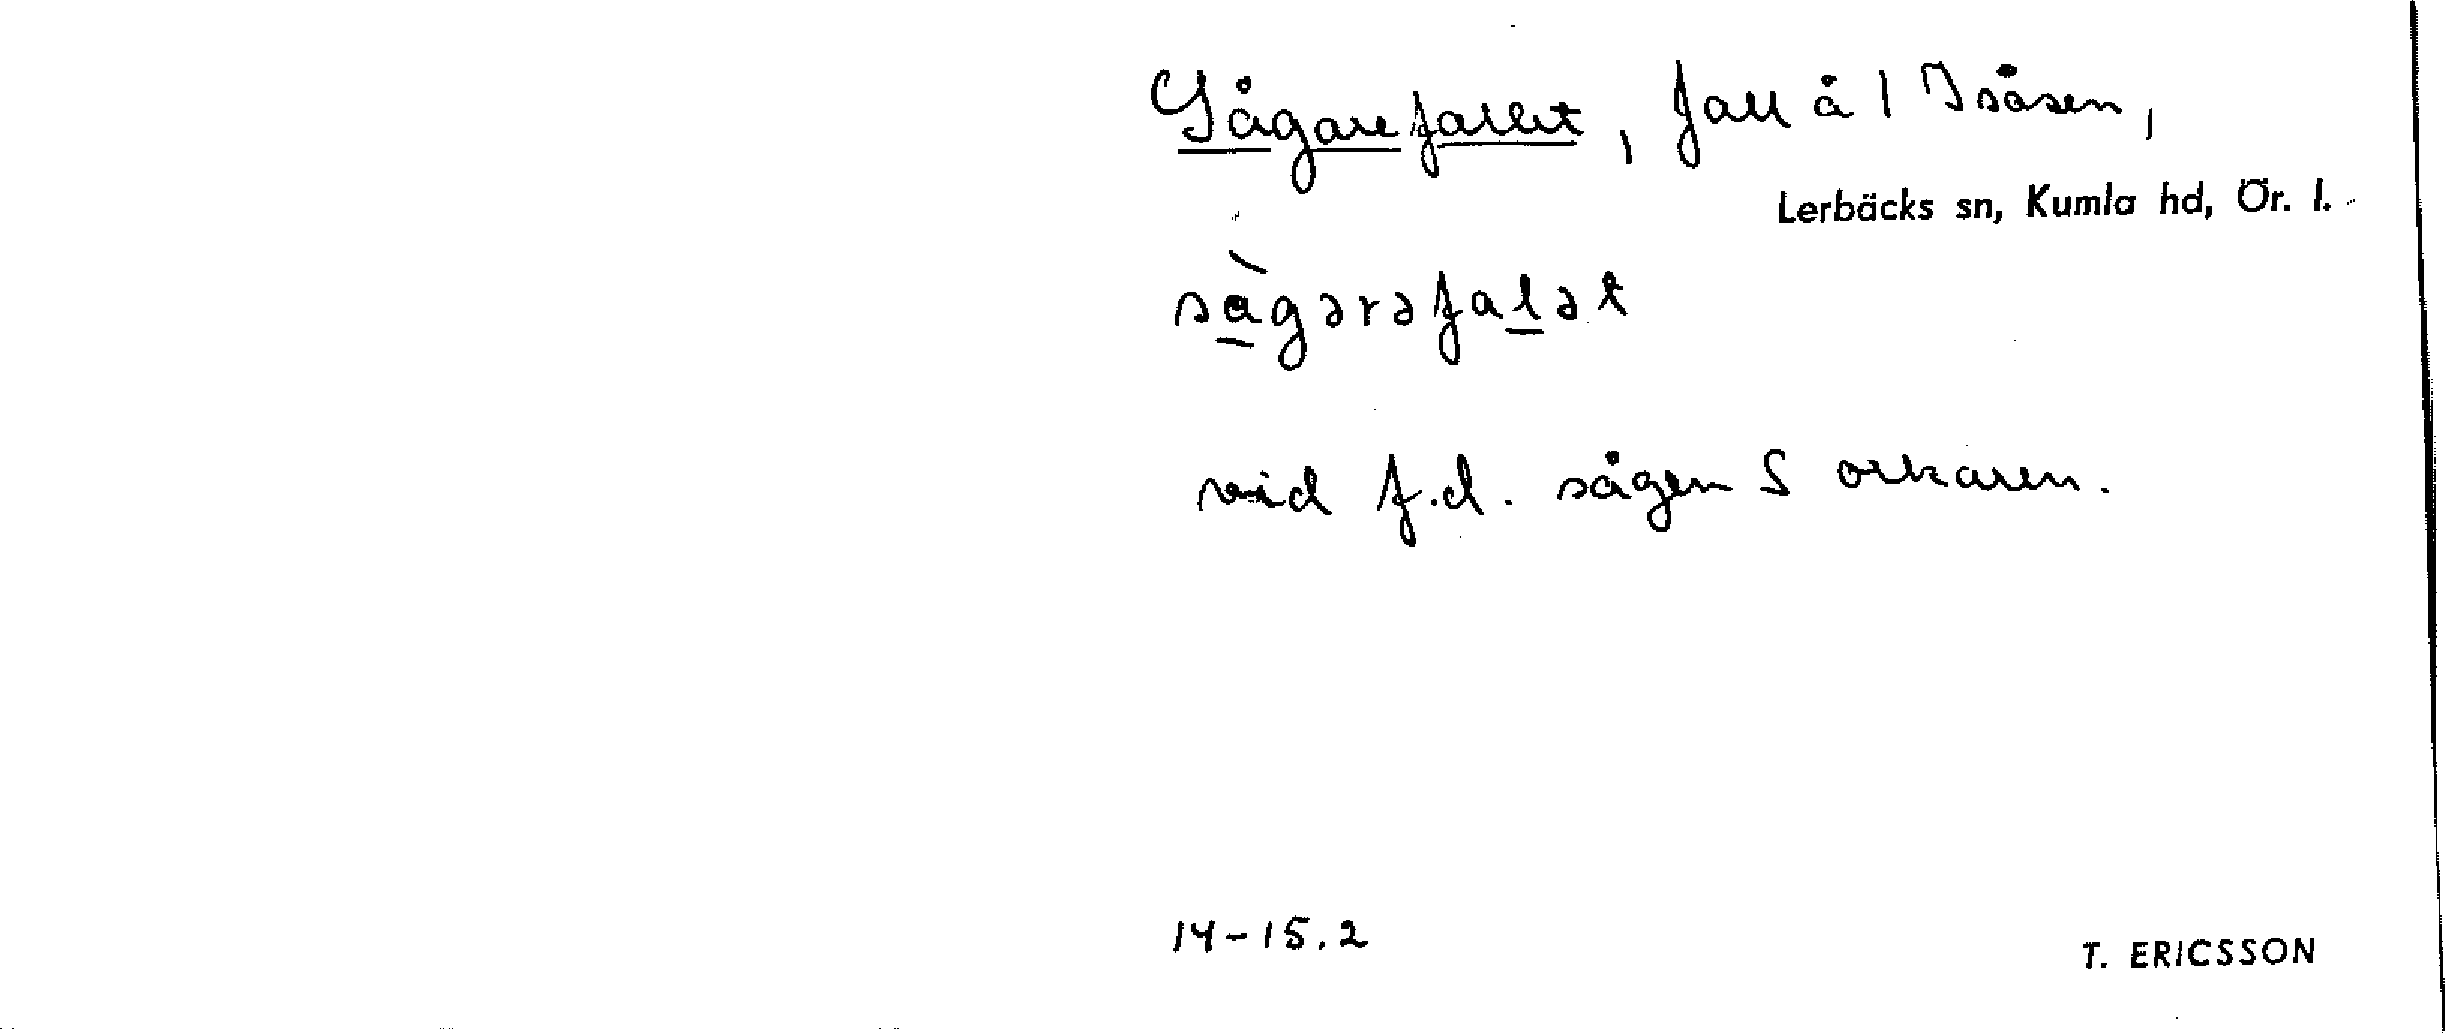 Sågarefallet, fall å 1 Isåsen,
Lerbäcks sn, Kumla hd, Ör. l.
sàgərəfalət
vid f.d. sågen S orkaren.
14-15.2
T. ERICSSON